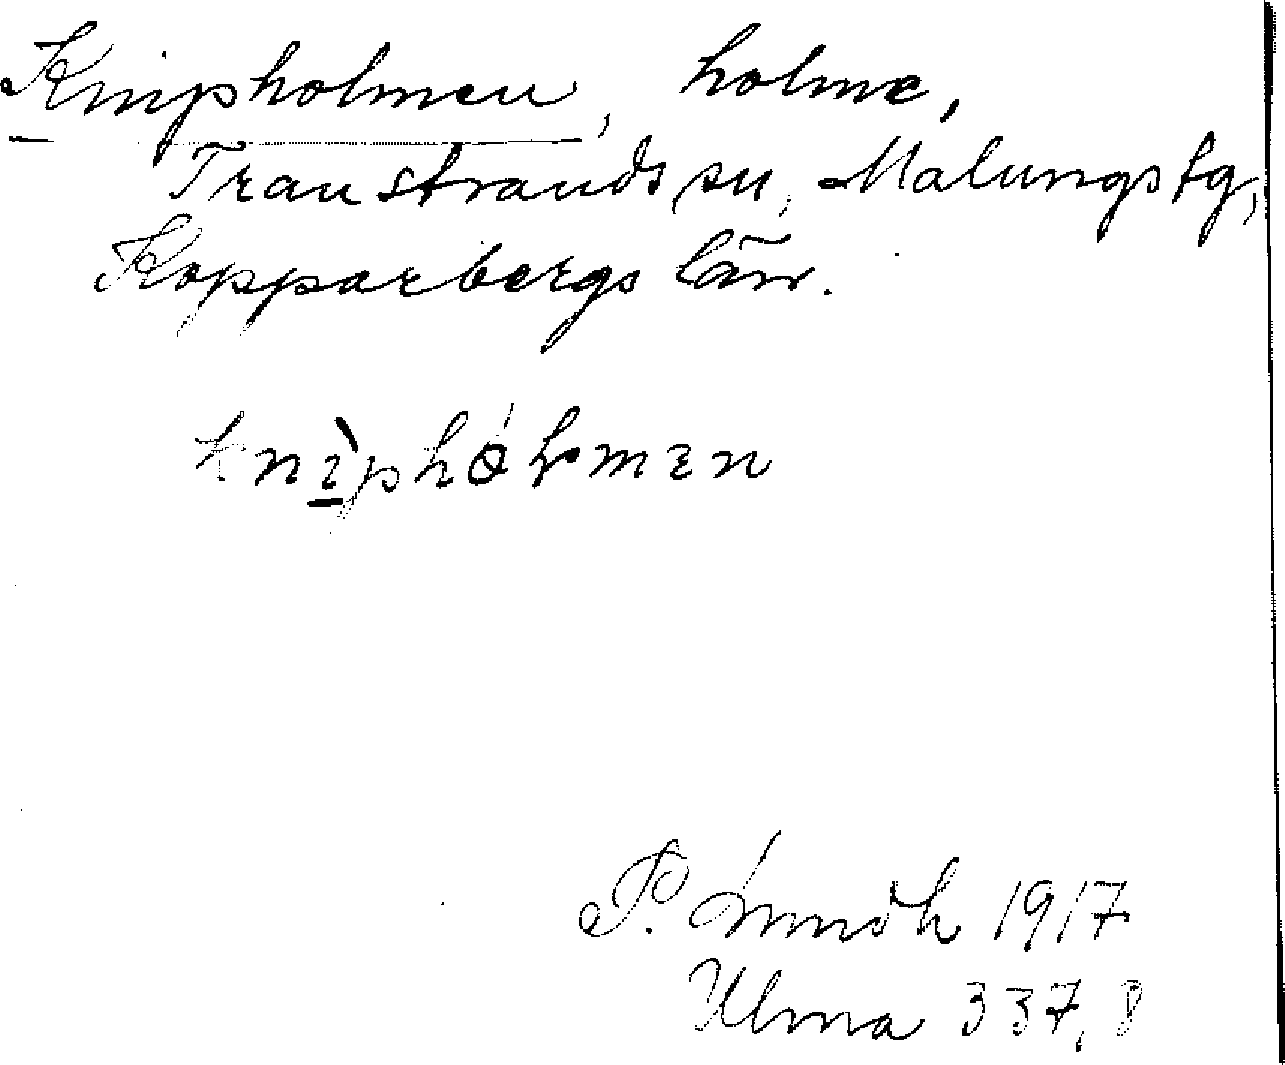 Knipholmen, holme,
Transtrands sn, Malungs tg,
Kopparbergs län.
P. Envik 1917
Ulma 337,8